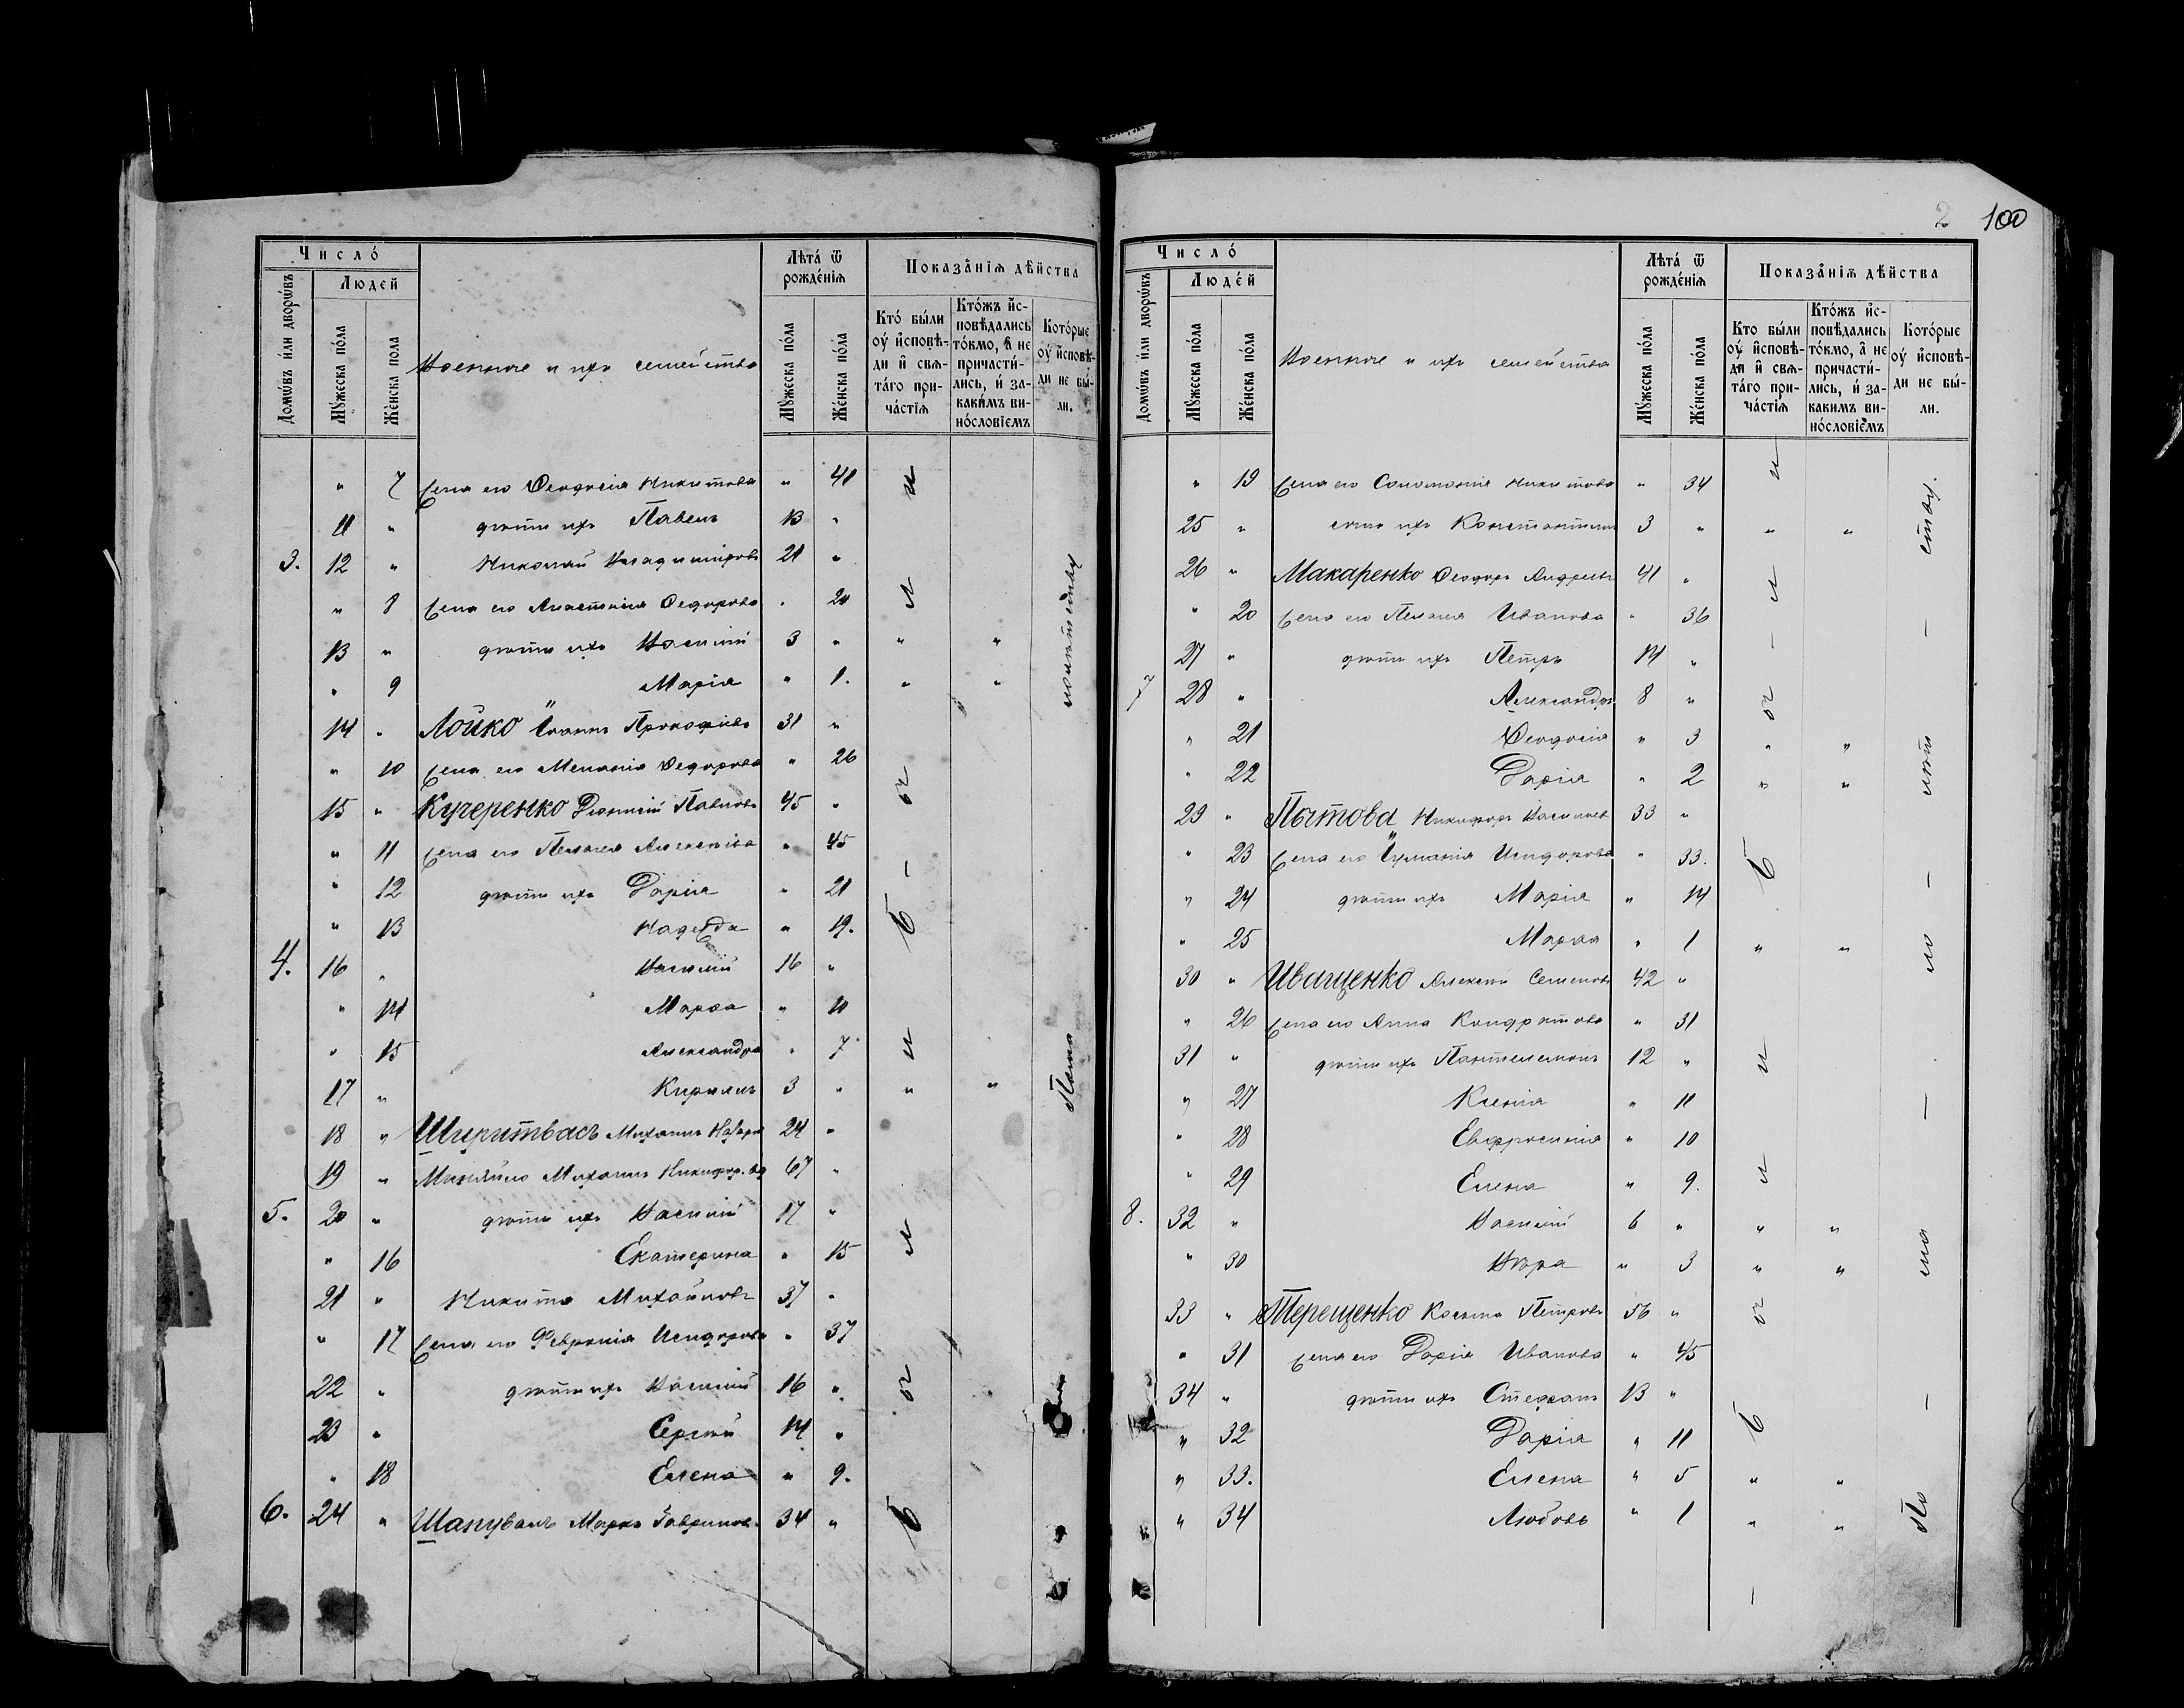 2 100
Число́
Людей
Домѡ́въ и́ли дворѡ́въ
Мꙋ́жеска по́ла
Же́нска пола
Военные и ихъ семейства
Лѣта́ ѿ рожде́нїѧ
Мꙋ́жеска по́ла
Же́нска по́ла
Показа̑нїѧ дѣ́йства
Кто́ бы́ли оу҆ и҆сповѣ-
ди и҆ свѧ-
та́го при-
ча́стїѧ
Кто́жъ и҆с-
повѣ́дались
то́кмо, а҆ не
причасти́-
лись, и҆ за-
каки́мъ ви-
но́словїемъ
Кото́рые
оу҆ и҆сповѣ́-
ди не бы́-
ли.
" 7 Жена его Феодосія Никитова " 41
11 " дѣти ихъ Павелъ 13 "
3. 12 " Николай Владиміровъ 21 "
" 8 Жена его Анастасія Федорова " 20
13 " дѣти ихъ Василій 3 " " "
" 9 Марія " 1. " "
14 " Лойко Іоаннъ Прокофіевъ 31 "
" 10 Жена его Меланія Федорова " 26
15 " Кучеренко Діонисій Павловъ 45 "
" 11 Жена его Пелагея Алексѣева " 45
" 12 дѣти ихъ Дарія " 21
" 13 Надежда " 19.
4. 16 " Василій 16 "
" 14 Марѳа " 10
" 15 Александра " 7
17 " Кириллъ 3 " " "
18 " Ширитвасъ Михаилъ Назаров 24 "
19 " Михаилъ Никифор. вд 67 "
5. 20 " дѣти ихъ Василій 17 "
" 16 Екатерина " 15
21 " Никита Михайловъ 37 "
" 17 Жена его Февронія Исидорова " 37
22 " дѣти ихъ Василій 16 "
23 " Сергѣй 14 "
" 18 Елена " 9.
6. 24 " Шаповалъ Маркъ Гавриловъ 34 "
Были
Число́
Люде́й
Домѡ́въ и́ли дворѡ́въ
Мꙋ́жеска по́ла
Же́нска по́ла
Военные и ихъ семейства
Лѣта́ ѿ рожде́нїѧ
Мꙋ́жеска по́ла
Же́нска по́ла
Показа̑нїѧ дѣ́йства
Кто бы́ли
оу҆ и҆сповѣ-
ди и҆ свѧ-
та́го при-
ча́стїѧ
Кто́жъ и҆с-
повѣ́дались
то́кмо, а҆ не
причасти́-
лись, и҆ за-
какимъ ви-
но́словїемъ
Кото́рые
оу҆ и҆сповѣ́-
ди не бы́-
ли.
" 19 Жена его Соломонія Никитова " 34
25 " сынъ ихъ Константинъ 3 " " "
26 " Макаренко Феодоръ Андреевъ 41 "
" 20 Жена его Пелагея Иванова " 36
27 " дѣти ихъ Петръ 14 "
7 28 " Александръ 8 "
" 21 Феодосія " 3 " "
" 22 Дарія " 2 " "
29 " Пытова Никифоръ Васильев 33 "
" 23 Жена его Іуліанія Исидорова " 33.
" 24 дѣти ихъ Марія " 14
" 25 Марѳа " 1 " "
30 " Иващенко Алексѣй Семеновъ 42 "
" 26 Жена его Анна Кондратова " 31
31 " дѣти ихъ Пантелеимонъ 12 "
" 27 Ксенія " 11
" 28 Евфросинія " 10
" 29 Елена " 9.
8. 32 " Василій 6 " " "
" 30 Вѣра " 3 " "
33 " Терещенко Косьма Петровъ 56 "
" 31 Жена его Дарія Иванова " 45
34 " дѣти ихъ Стефанъ 13 "
" 32 Дарія " 11
" 33. Елена " 5 " "
" 34 Любовь " 1 " "
Были